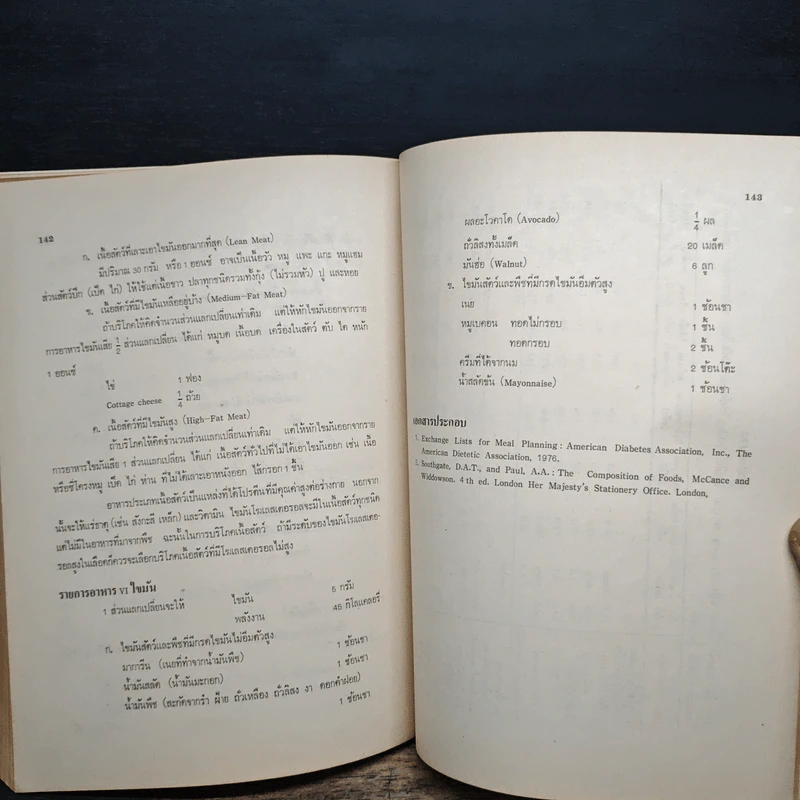 142
ก. เนื้อสัตว์ที่เลาะเอาไขมันออกมากที่สุด (Lean Meat)
มีปริมาณ 30 กรัม หรือ 1 ออนซ์ อาจเป็นเนื้อวัว หมู แพะ แกะ หมูแฮม
ส่วนสัตว์ปีก (เป็ด ไก่) ให้ใช้แต่เนื้อขาว ปลาทุกชนิดรวมทั้งกุ้ง (ไม่รวมหัว) ปู และหอย
ข. เนื้อสัตว์ที่มีไขมันเหลืออยู่บ้าง (Medium-Fat Meat)
ถ้าบริโภคให้คิดจำนวนส่วนแลกเปลี่ยนเท่าเดิม แต่ให้หักไขมันออกจากราย
การอาหารไขมันเสีย ½ ส่วนแลกเปลี่ยน ได้แก่ หมูบด เนื้อบด เครื่องในสัตว์ ตับ ไต หนัก
1 ออนซ์
ไข่ 1 ฟอง
Cottage cheese ¼ ถ้วย
ค. เนื้อสัตว์ที่มีไขมันสูง (High-Fat Meat)
ถ้าบริโภคให้คิดจำนวนส่วนแลกเปลี่ยนเท่าเดิม แต่ให้หักไขมันออกจากราย
การอาหารไขมันเสีย 1 ส่วนแลกเปลี่ยน ได้แก่ เนื้อสัตว์ทั่วไปที่ไม่ได้เอาไขมันออก เช่น เนื้อ
หรือซี่โครงหมู เป็ด ไก่ ห่าน ที่ไม่ได้เลาะเอาหนังออก ไส้กรอก 1 ชิ้น
อาหารประเภทเนื้อสัตว์เป็นแหล่งที่ได้โปรตีนที่มีคุณค่าสูงต่อร่างกาย นอกจาก
นั้นจะให้แร่ธาตุ (เช่น สังกะสี เหล็ก) และวิตามิน ไขมันโรเลสเตอรอลจะมีในเนื้อสัตว์ทุกชนิด
แต่ไม่มีในอาหารที่มาจากพืช ฉะนั้นในการบริโภคเนื้อสัตว์ ถ้ามีระดับของไขมันโรเลสเตอ-
รอลสูงในเลือดก็ควรจะเลือกบริโภคเนื้อสัตว์ที่มีโรเลสเตอรอลไม่สูง
รายการอาหาร VI ไขมัน
1 ส่วนแลกเปลี่ยนจะให้ ไขมัน 5 กรัม
พลังงาน 45 กิโลแคลอรี่
ก. ไขมันสัตว์และพืชที่มีกรดไขมันไม่อิ่มตัวสูง
มาการีน (เนยที่ทำจากน้ำมันพืช) 1 ช้อนชา
น้ำมันสลัด (น้ำมันมะกอก) 1 ช้อนชา
น้ำมันพืช (สะกัดจากรำ ฝ้าย ถั่วเหลือง ถั่วลิสง งา ดอกคำฝอย) 1 ช้อนชา
143
ผลอะโวคาโด (Avocado) ¼ ผล
ถั่วลิสงทั้งเมล็ด 20 เมล็ด
มันฮ่อ (Walnut) 6 ลูก
ข. ไขมันสัตว์และพืชที่มีกรดไขมันอิ่มตัวสูง
เนย 1 ช้อนชา
หมูเบคอน ทอดไม่กรอบ 1 ชิ้น
ทอดกรอบ 2 ชิ้น
ครีมที่ได้จากนม 2 ช้อนโต๊ะ
น้ำสลัดข้น (Mayonnaise) 1 ช้อนชา
เอกสารประกอบ
1. Exchange Lists for Meal Planning: American Diabetes Association, Inc., The
American Dietetic Association, 1976.
2. Southgate, D.A.T., and Paul, A.A.: The Composition of Foods, McCance and
Widdowson. 4 th ed. London Her Majesty's Stationery Office. London,